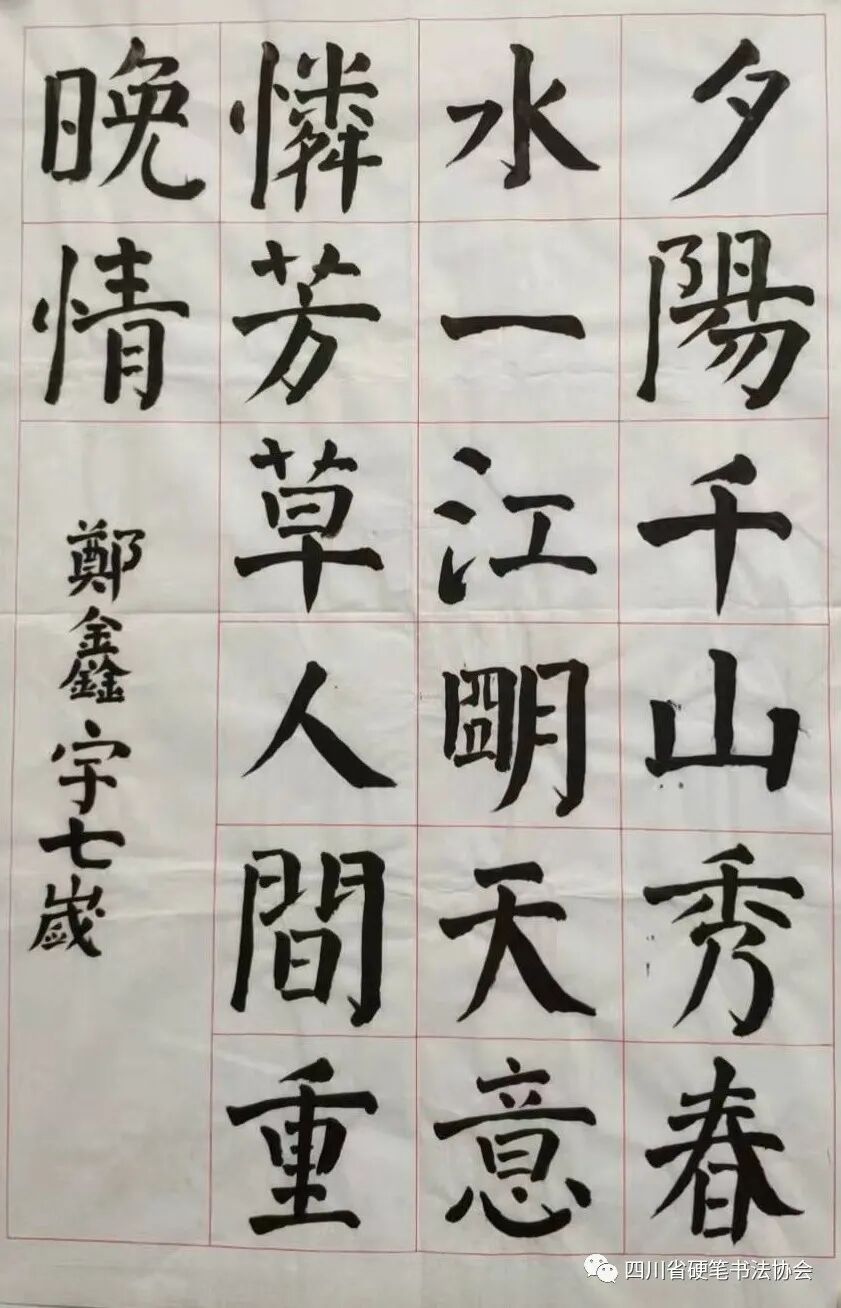 夕陽千山秀春
水一江朙天意
憐芳草人間重
晚情
鄭鑫宇七歲
四川省硬笔书法协会